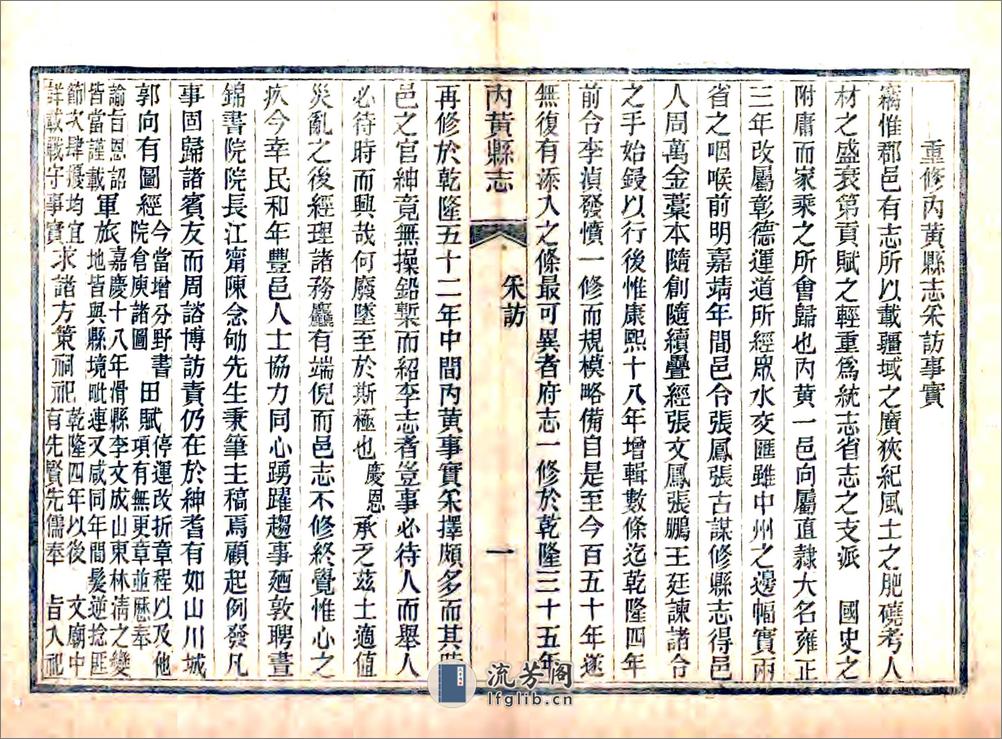 重修內黃縣志采訪事實
竊惟郡邑有志所以載疆域之廣狹紀風土之肥磽考人
材之盛衰第貢賦之輕重爲統志省志之支派　國史之
附庸而家乘之所會歸也內黃一邑向屬直隷大名雍正
三年改屬彰德運道所經眾水交匯雖中州之邊幅實兩
省之咽喉前明嘉靖年間邑令張鳳張古謀修縣志得邑
人周萬金藁本隨創隨續疊經張文鳳張鵬王廷諫諸令
之手始鋟以行後惟康熙十八年增輯數條迄乾隆四年
前令李湞發憤一修而規模略備自是至今百五十年遂
無復有添入之條最可異者府志一修於乾隆三十五年
內黃縣志
采訪
一
再修於乾隆五十二年中間內黃事實采擇頗多而其時
邑之官紳竟無操鉛槧而紹李志者豈事必待人而舉人
必待時而興哉何廢墜至於斯極也　慶恩　承乏茲土適值
災亂之後經理諸務麤有端倪而邑志不修終覺惟心之
疚今幸民和年豐邑人士協力同心踴躍趨事廼敦聘晝
錦書院院長江甯陳念劬先生秉筆主稿焉顧起例發凡
事固歸諸賓友而周諮博訪責仍在於紳耆有如山川城
郭向有圖經今當增分野書院倉庾諸圖　田賦停運改折章程以及他項有無更章並歷奉
諭旨恩詔皆當謹載　軍旅嘉慶十八年滑縣李文成山東林淸之變地皆與縣境毗連又咸同年間髮逆捻匪
節次肆擾均宜詳載戰守事實　求諸方策祠祀乾隆四年以後　文廟中有先賢先儒奉　旨入祀
流芳閣
lfglib.cn